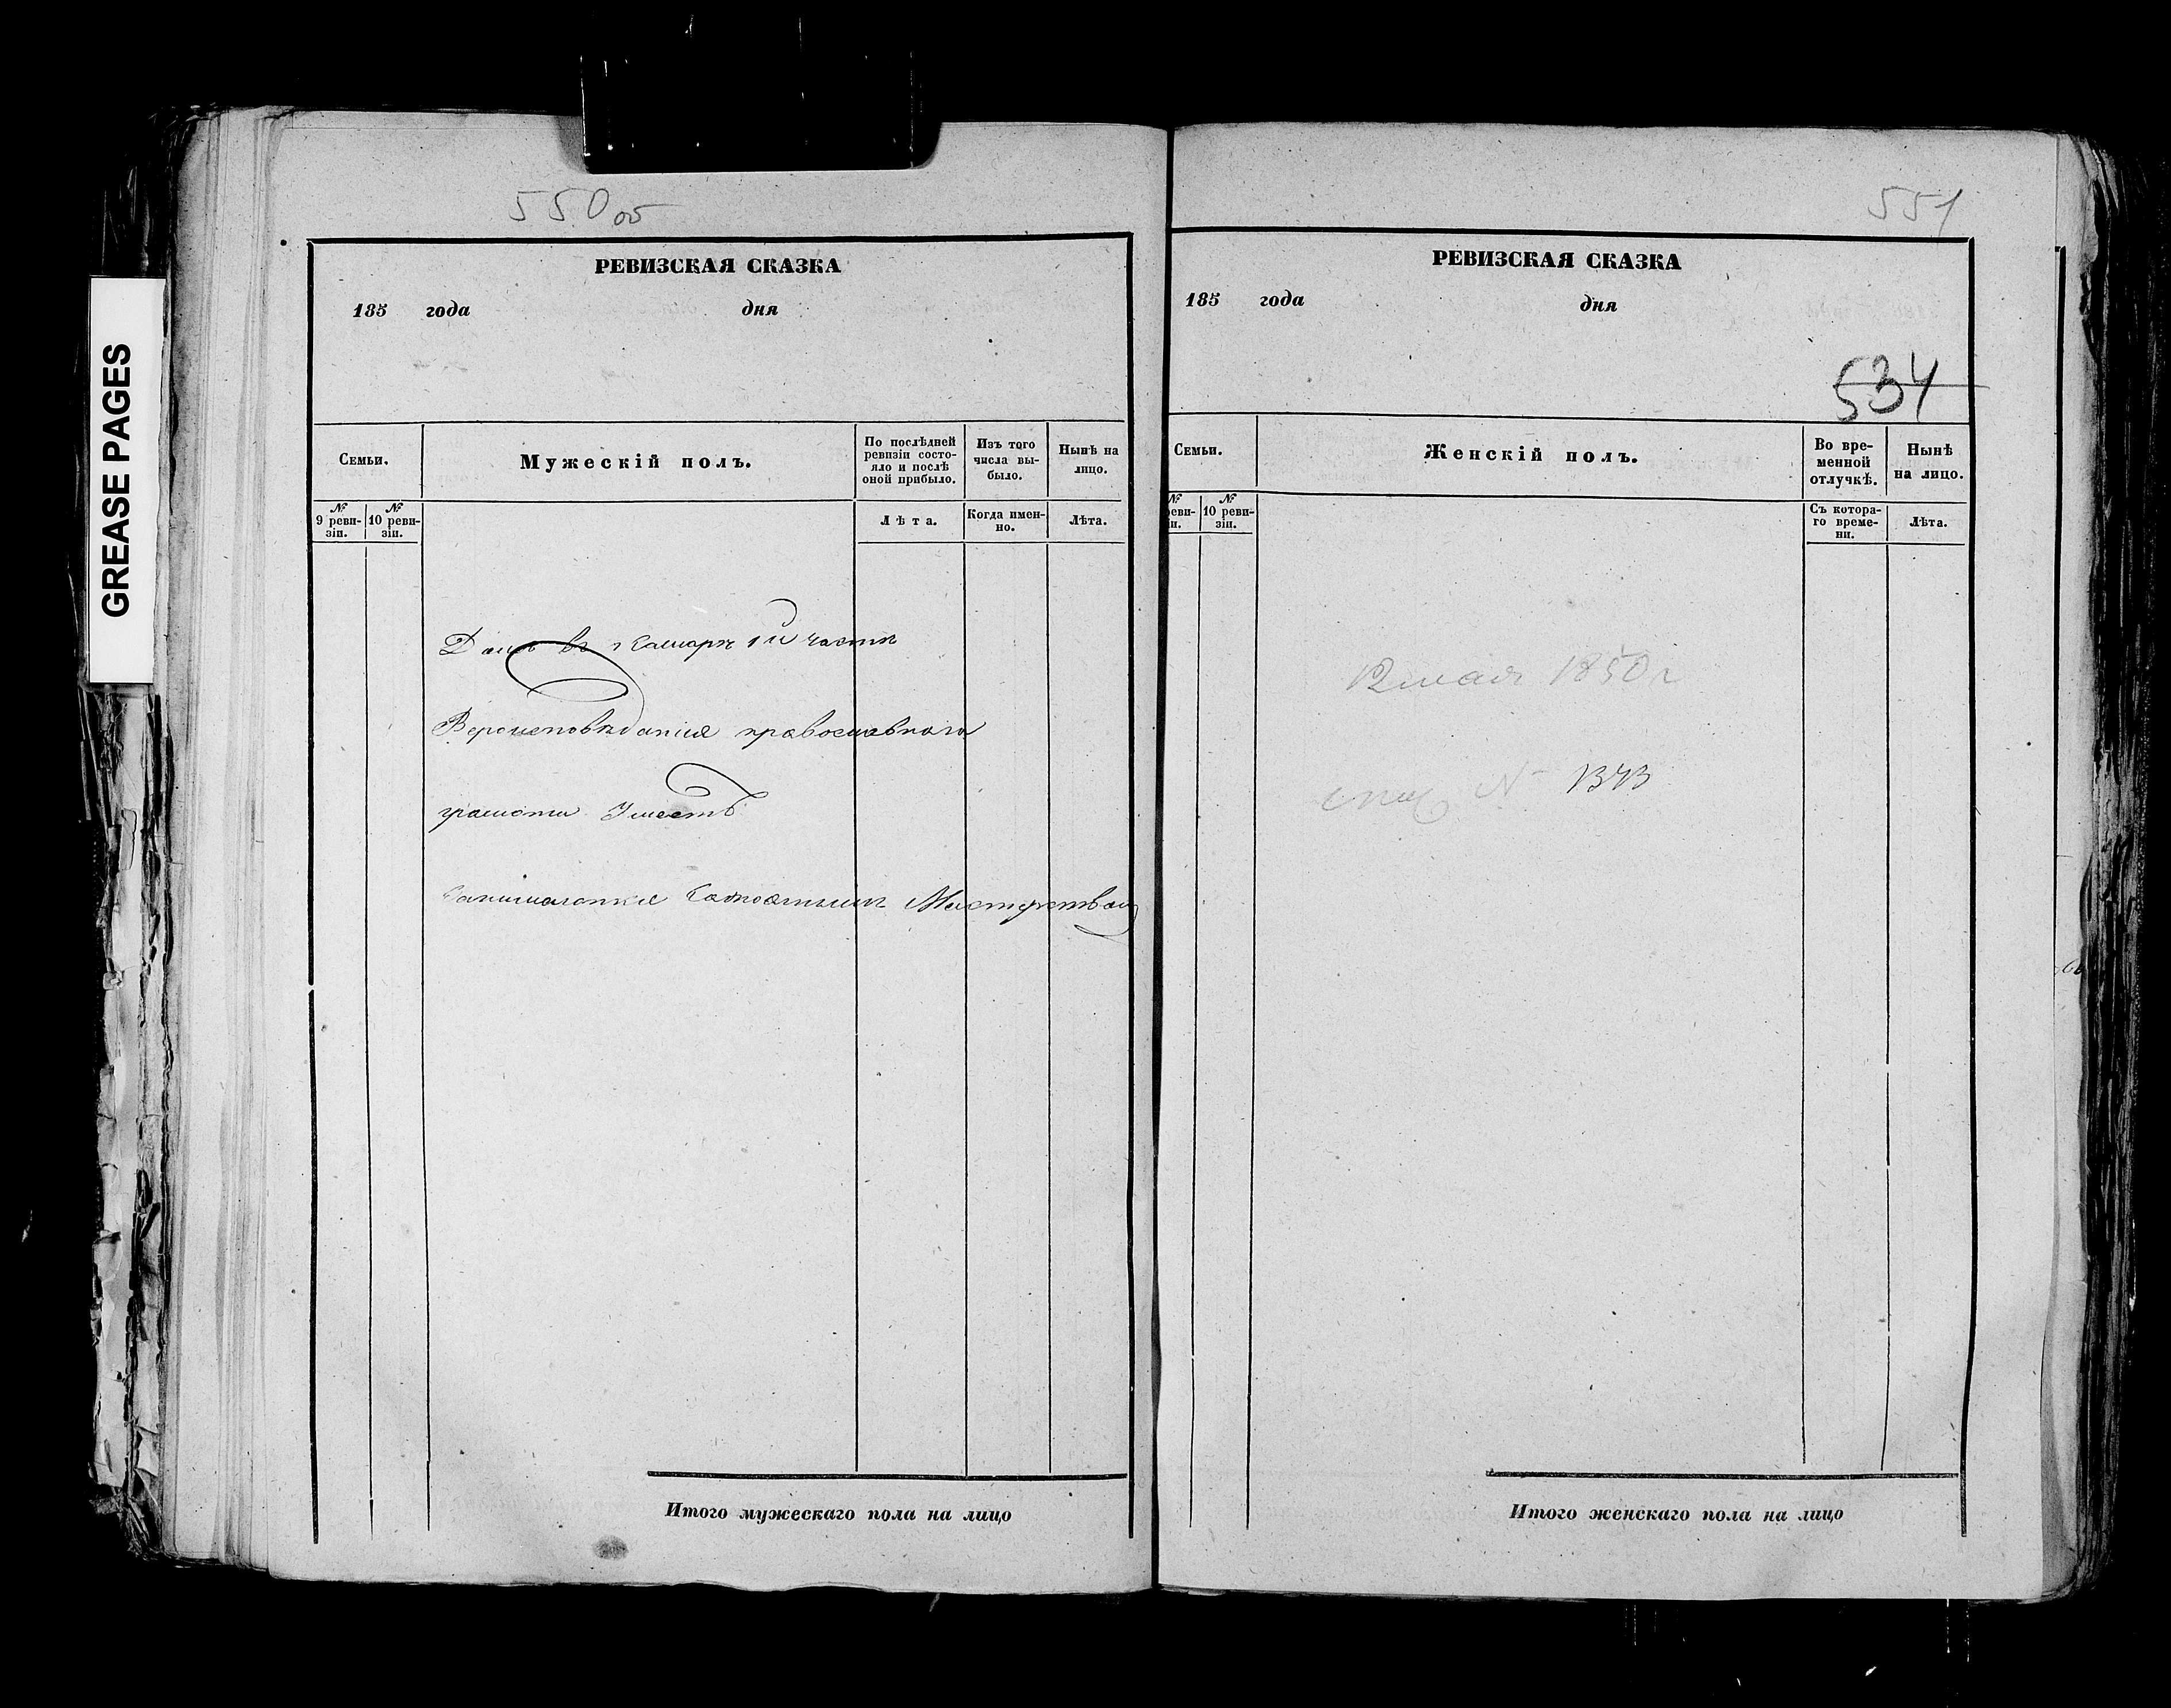 GREASE PAGES
550 об
РЕВИЗСКАЯ СКАЗКА
185 года дня
Семьи.
Мужескій полъ.
По послѣдней ревизіи состо-
яло и послѣ
оной прибыло.
Изъ того
числа вы-
было.
Нынѣ на
лицо.
№
9 реви-
зіи.
№
10 реви-
зіи.
Лѣта.
Когда имен-
но.
Лѣта.
Домъ въ Самарѣ 1й части
Вероисповѣданія православнаго
грамоти Умеетъ
занимается Сапожнымъ Мастерствомъ
Итого мужескаго пола на лицо
551
РЕВИЗСКАЯ СКАЗКА
185 года дня
534
Семьи.
Женскій полъ.
Во вре-
менной
отлучкѣ.
Нынѣ
на лицо.
№
реви-
зіи.
№
10 реви-
зіи.
Съ котора-
го време-
ни.
Лѣта.
12 мая 1850 г
№ 1343
Итого женскаго пола на лицо